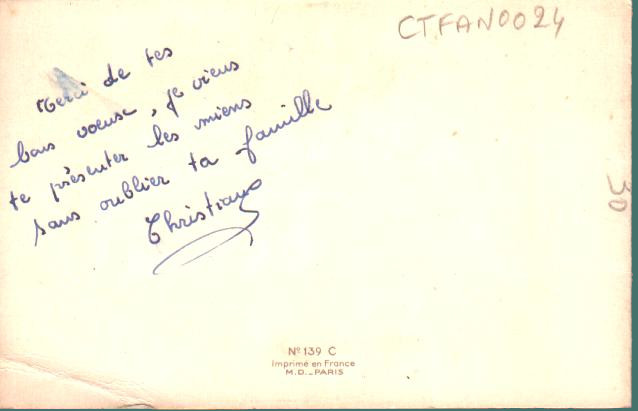 CTFAN0024
Merci de tes
bons voeux, je viens
te présenter les miens
sans oublier ta famille
Christiane
30
Nº 139 C
Imprimé en France
M.D._PARIS